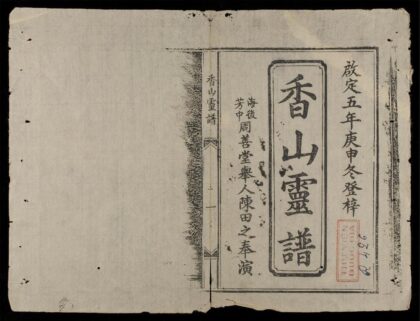 啟定五年庚申冬登梓
香山靈譜
海後
芳中
周善堂舉人陳田之奉演
香山靈譜